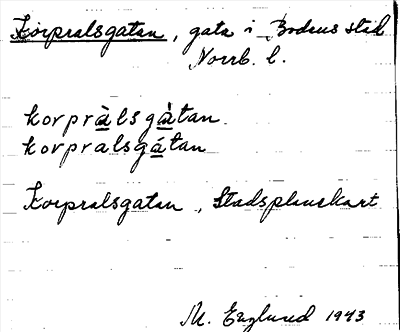 Korpralsgatan, gata i Bodens stad
Norrb. l.
korpràlsgàtan.
korpralsgátan
Korpralsgatan, Stadsplanekart
M. Englund 1943